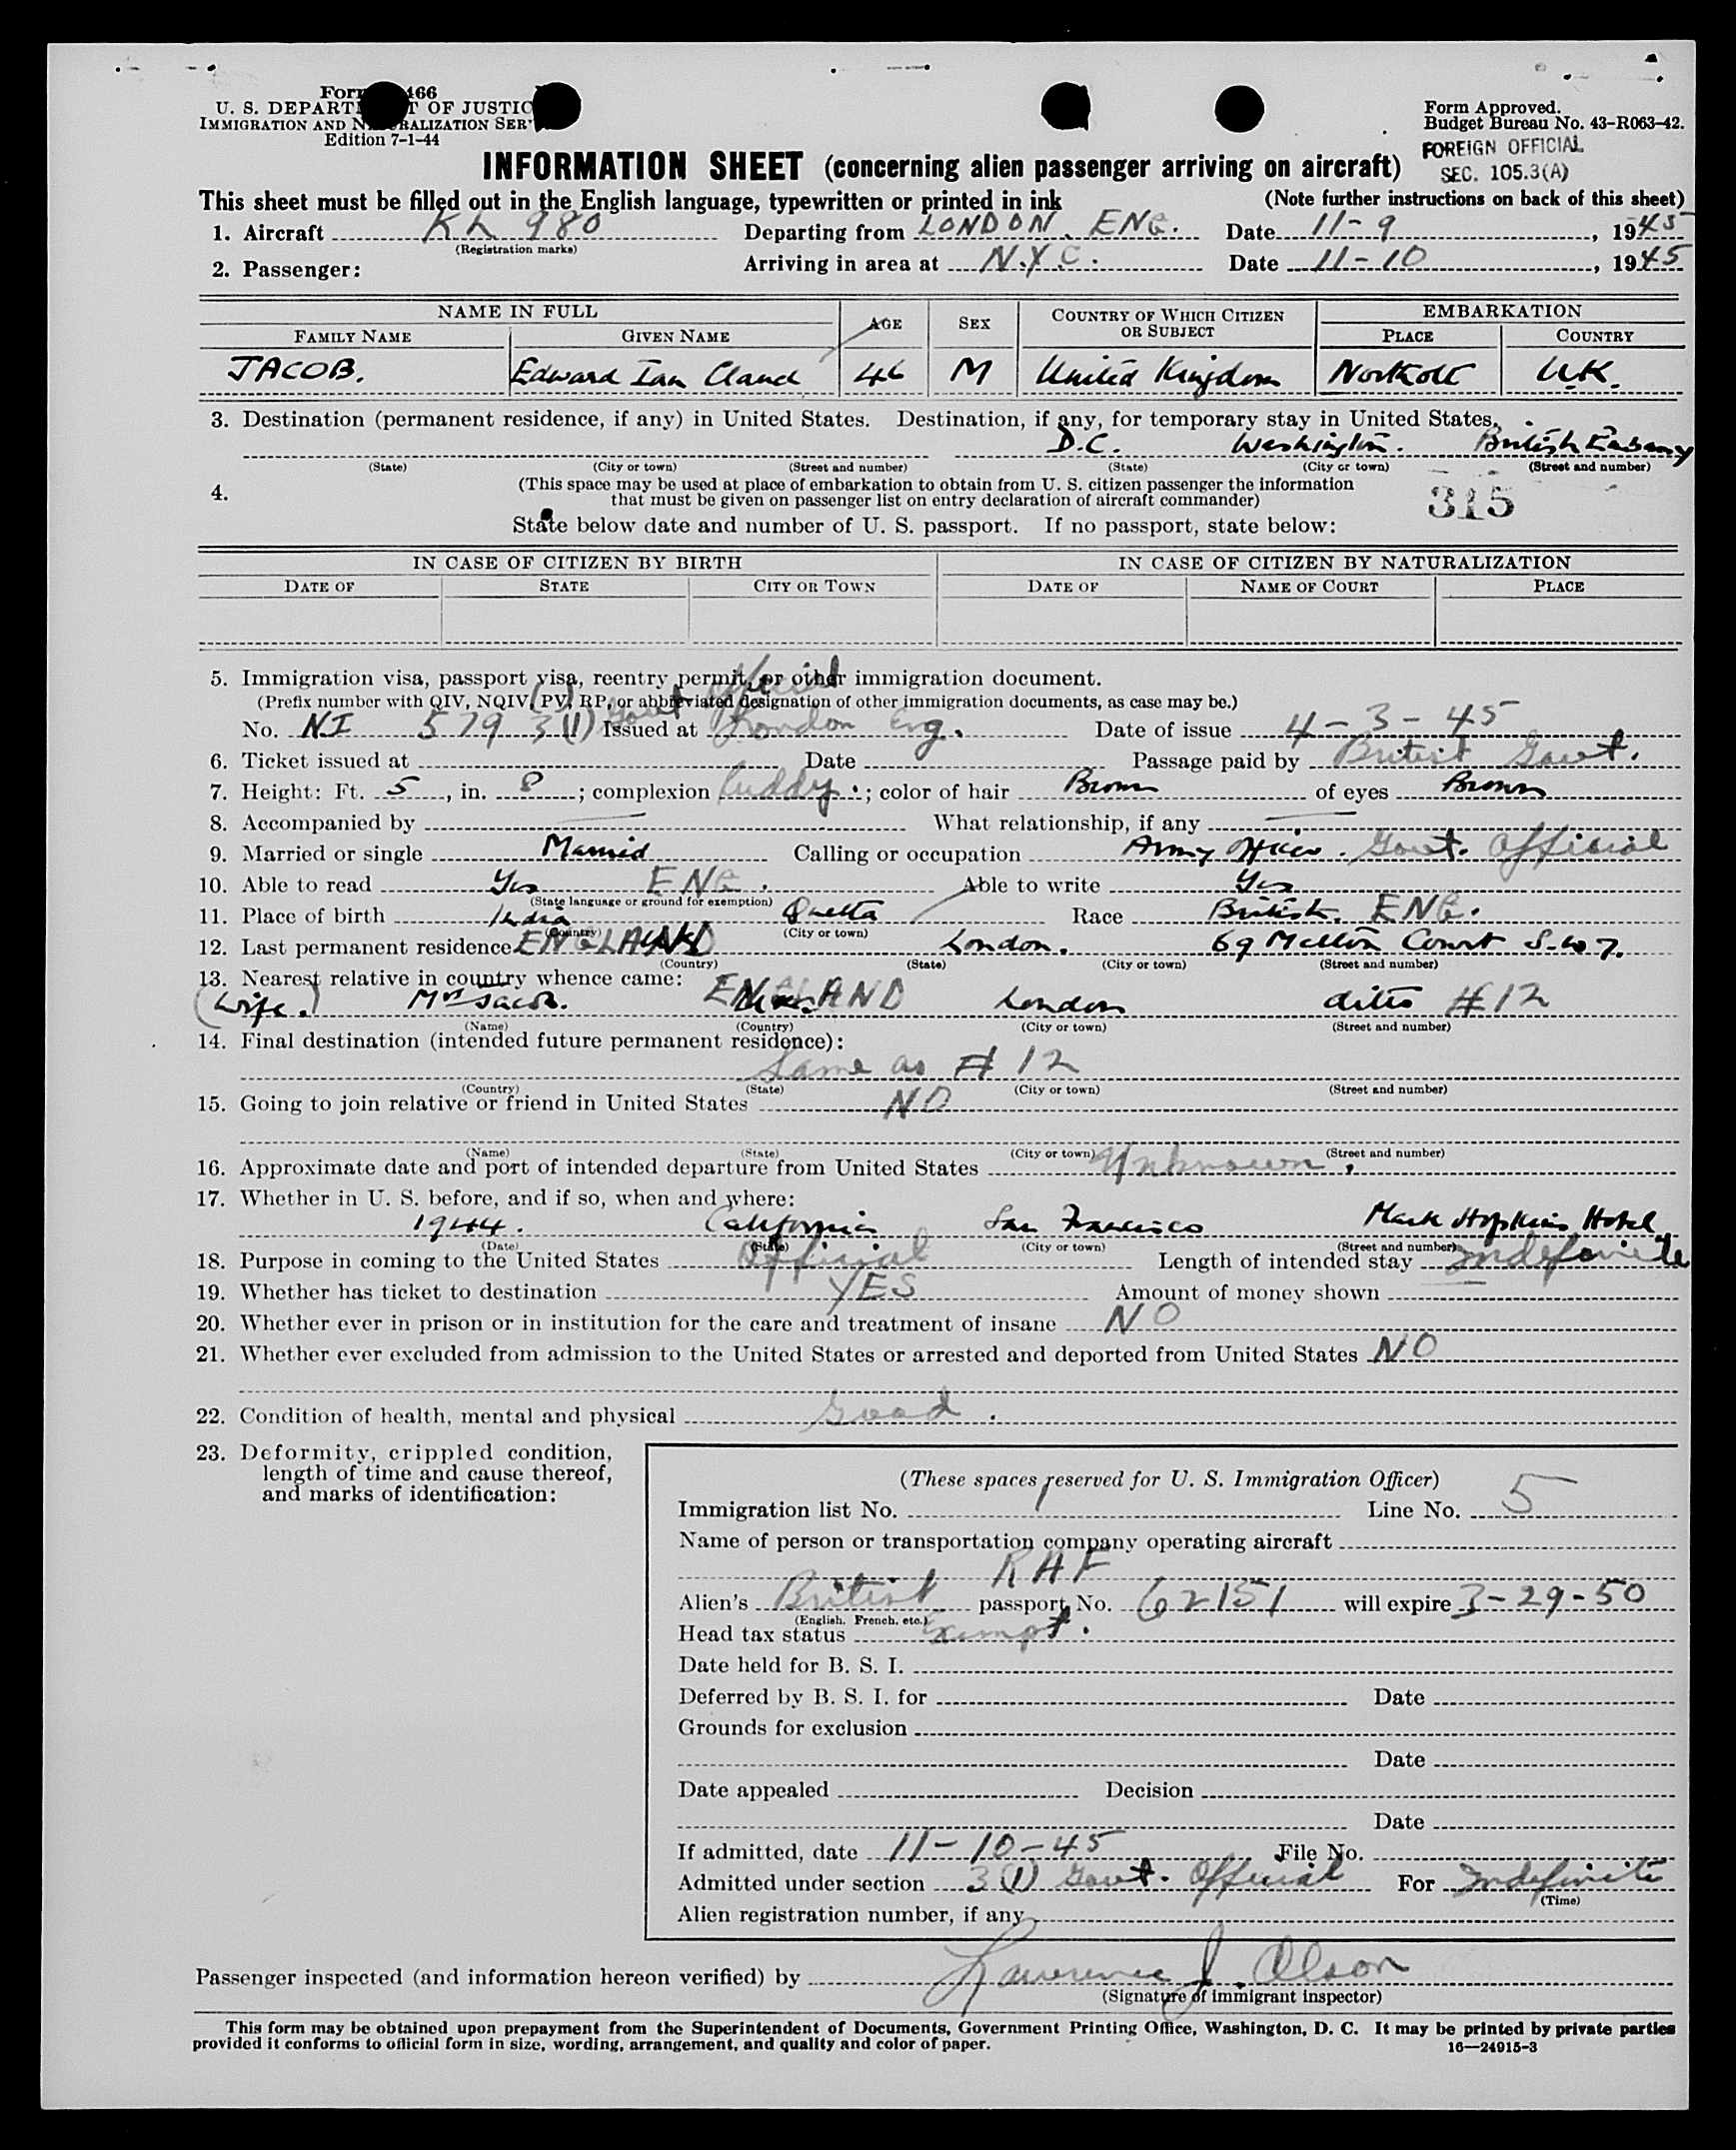 Form 466
U. S. DEPARTMENT OF JUSTICE
IMMIGRATION AND NATURALIZATION SER
Edition 7-1-44
Form Approved.
Budget Bureau No. 43-R063-42.
FOREIGN OFFICIAL
SEC. 105.3(A)
INFORMATION SHEET (concerning alien passenger arriving on aircraft)
This sheet must be filled out in the English language, typewritten or printed in ink (Note further instructions on back of this sheet)
1. Aircraft KL 980 Departing from LONDON. ENG. Date 11-9, 1945
(Registration marks)
2. Passenger: Arriving in area at N.Y.C. Date 11-10, 1945
NAME IN FULL AGE SEX COUNTRY OF WHICH CITIZEN OR SUBJECT EMBARKATION
FAMILY NAME GIVEN NAME PLACE COUNTRY
JACOB. Edward Ian Claud 46 M United Kingdom Northolt U.K.
3. Destination (permanent residence, if any) in United States. Destination, if any, for temporary stay in United States.
D.C. Washington. British Embassy
(State) (City or town) (Street and number) (State) (City or town) (Street and number)
4. (This space may be used at place of embarkation to obtain from U. S. citizen passenger the information
that must be given on passenger list on entry declaration of aircraft commander)
315
State below date and number of U. S. passport. If no passport, state below:
IN CASE OF CITIZEN BY BIRTH IN CASE OF CITIZEN BY NATURALIZATION
DATE OF STATE CITY OR TOWN DATE OF NAME OF COURT PLACE
5. Immigration visa, passport visa, reentry permit, or other immigration document.
(Prefix number with QIV, NQIV, PV, RP, or abbreviated designation of other immigration documents, as case may be.)
Govt Official
No. NI 579 3(1) Issued at London Eng. Date of issue 4-3-45
6. Ticket issued at Date Passage paid by British Govt.
7. Height: Ft. 5, in. 8; complexion Ruddy.; color of hair Brown of eyes Brown
8. Accompanied by What relationship, if any
9. Married or single Married Calling or occupation Army Officer. Govt. Official
10. Able to read Yes ENG. Able to write Yes
(State language or ground for exemption)
11. Place of birth India Quetta Race British. ENG.
(Country) (City or town)
12. Last permanent residence ENGLAND London. 69 Melton Court S.W.7.
(Country) (State) (City or town) (Street and number)
13. Nearest relative in country whence came:
(Wife.) Mrs Jacob. ENGLAND London ditto #12
(Name) (Country) (City or town) (Street and number)
14. Final destination (intended future permanent residence):
Same as # 12
(Country) (State) (City or town) (Street and number)
15. Going to join relative or friend in United States NO
(Name) (State) (City or town) (Street and number)
16. Approximate date and port of intended departure from United States Unknown.
17. Whether in U. S. before, and if so, when and where:
1944. California San Francisco Mark Hopkins Hotel
(Date) (State) (City or town) (Street and number)
18. Purpose in coming to the United States Official Length of intended stay Indefinite
19. Whether has ticket to destination YES Amount of money shown
20. Whether ever in prison or in institution for the care and treatment of insane NO
21. Whether ever excluded from admission to the United States or arrested and deported from United States NO
22. Condition of health, mental and physical Good.
23. Deformity, crippled condition,
length of time and cause thereof,
and marks of identification:
(These spaces reserved for U. S. Immigration Officer)
Immigration list No. 1 Line No. 5
Name of person or transportation company operating aircraft
RAF
Alien's British passport No. 62151 will expire 3-29-50
(English. French, etc.)
Head tax status Exempt.
Date held for B. S. I.
Deferred by B. S. I. for Date
Grounds for exclusion
Date
Date appealed Decision
Date
If admitted, date 11-10-45 File No.
Admitted under section 3(1) Govt. Official For Indefinite
(Time)
Alien registration number, if any
Passenger inspected (and information hereon verified) by Lawrence J. Olson
(Signature of immigrant inspector)
This form may be obtained upon prepayment from the Superintendent of Documents, Government Printing Office, Washington, D. C. It may be printed by private parties
provided it conforms to official form in size, wording, arrangement, and quality and color of paper. 16—24915-3